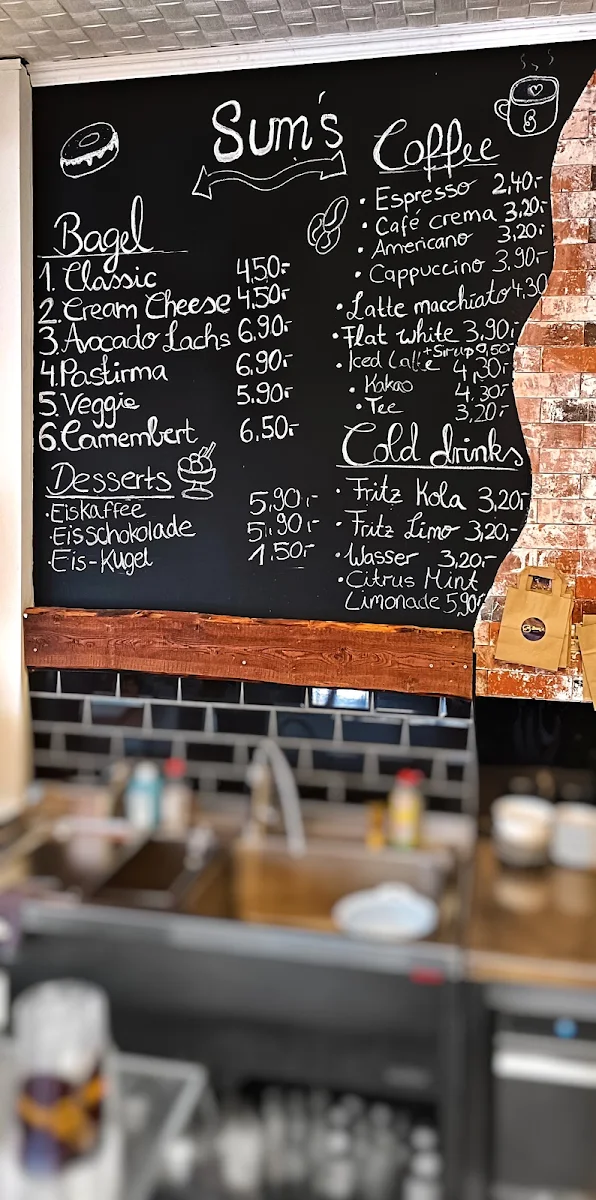 Sum's
Bagel
1. Classic 4,50.-
2. Cream Cheese 4,50.-
3. Avocado Lachs 6.90.-
4. Pastirma 6.90.-
5. Veggie 5.90.-
6. Camembert 6,50.-
Desserts
· Eiskaffee 5,90.-
· Eisschokolade 5,90.-
· Eis-Kugel 1.50.-
Coffee
· Espresso 2,40.-
· Café crema 3,20.-
· Americano 3,20.-
· Cappuccino 3,90.-
· Latte macchiato 4,30
· Flat white 3,90.-
+Sirup 0,50
· Iced Latte 4,30.-
· Kakao 4.30.-
· Tee 3,20.-
Cold drinks
· Fritz Kola 3,20.-
· Fritz Limo 3,20.-
· Wasser 3,20.-
· Citrus Mint
Limonade 5,90.-